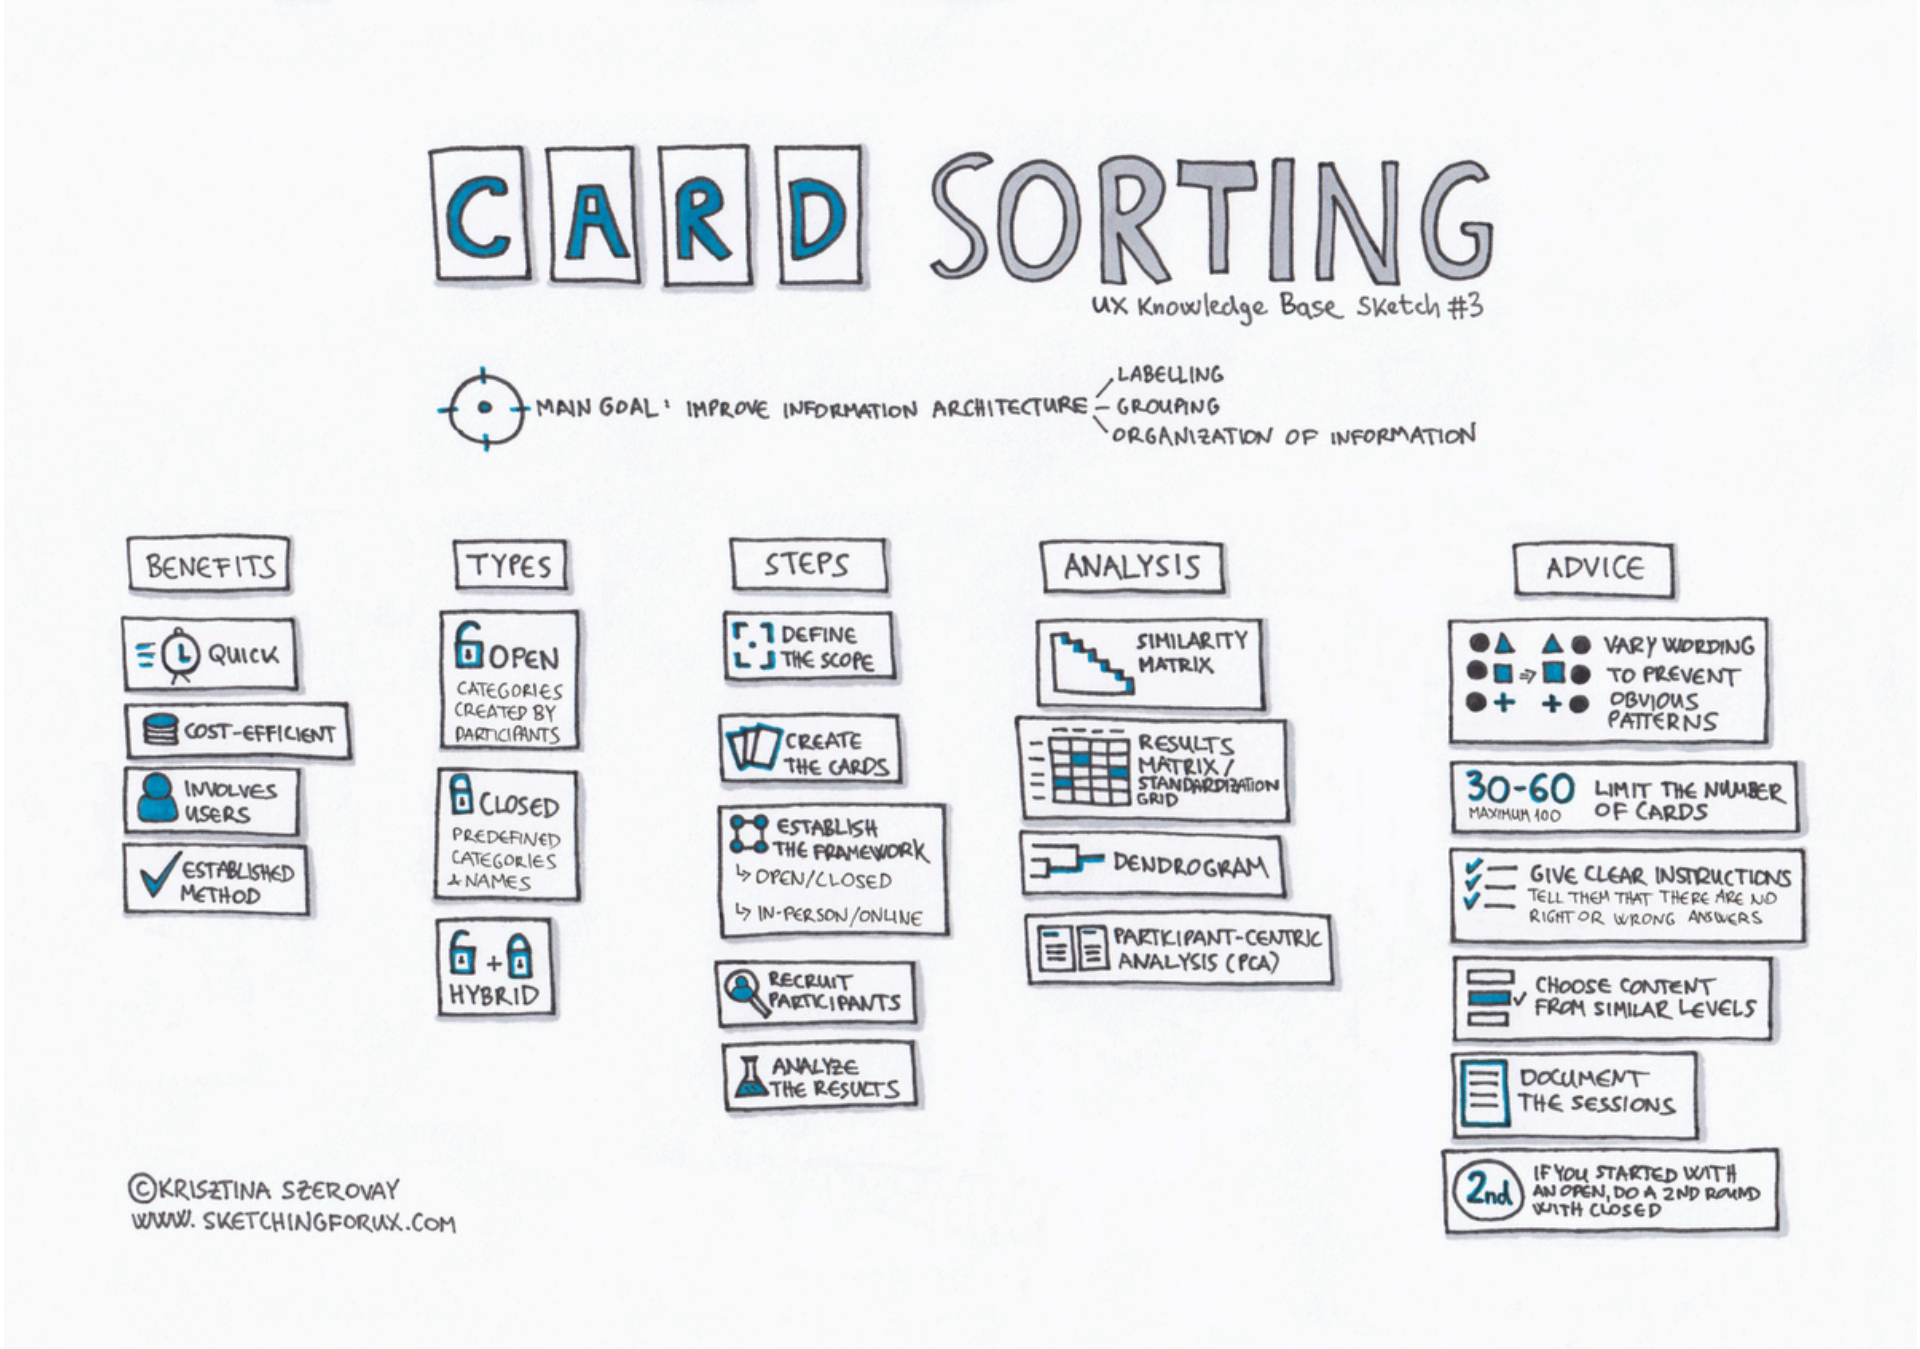 CARD SORTING
UX Knowledge Base Sketch #3
MAIN GOAL: IMPROVE INFORMATION ARCHITECTURE
LABELLING
GROUPING
ORGANIZATION OF INFORMATION
BENEFITS
QUICK
COST-EFFICIENT
INVOLVES
USERS
ESTABLISHED
METHOD
TYPES
OPEN
CATEGORIES
CREATED BY
PARTICIPANTS
CLOSED
PREDEFINED
CATEGORIES
& NAMES
+
HYBRID
STEPS
DEFINE
THE SCOPE
CREATE
THE CARDS
ESTABLISH
THE FRAMEWORK
↳ OPEN/CLOSED
↳ IN-PERSON/ONLINE
RECRUIT
PARTICIPANTS
ANALYZE
THE RESULTS
ANALYSIS
SIMILARITY
MATRIX
RESULTS
MATRIX/
STANDARDIZATION
GRID
DENDROGRAM
PARTICIPANT-CENTRIC
ANALYSIS (PCA)
ADVICE
VARY WORDING
TO PREVENT
OBVIOUS
PATTERNS
30-60
MAXIMUM 100
LIMIT THE NUMBER
OF CARDS
GIVE CLEAR INSTRUCTIONS
TELL THEM THAT THERE ARE NO
RIGHT OR WRONG ANSWERS
CHOOSE CONTENT
FROM SIMILAR LEVELS
DOCUMENT
THE SESSIONS
2nd
IF YOU STARTED WITH
AN OPEN, DO A 2ND ROUND
WITH CLOSED
©KRISZTINA SZEROVAY
WWW.SKETCHINGFORUX.COM